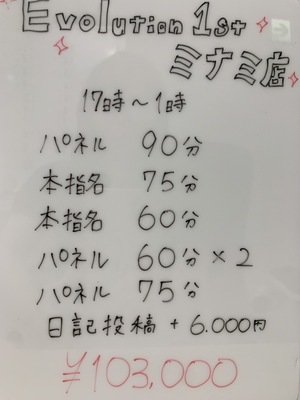 Evolution 1st
ミナミ店
17時～1時
パネル 90分
本指名 75分
本指名 60分
パネル 60分×2
パネル 75分
日記投稿 + 6.000円
¥103,000